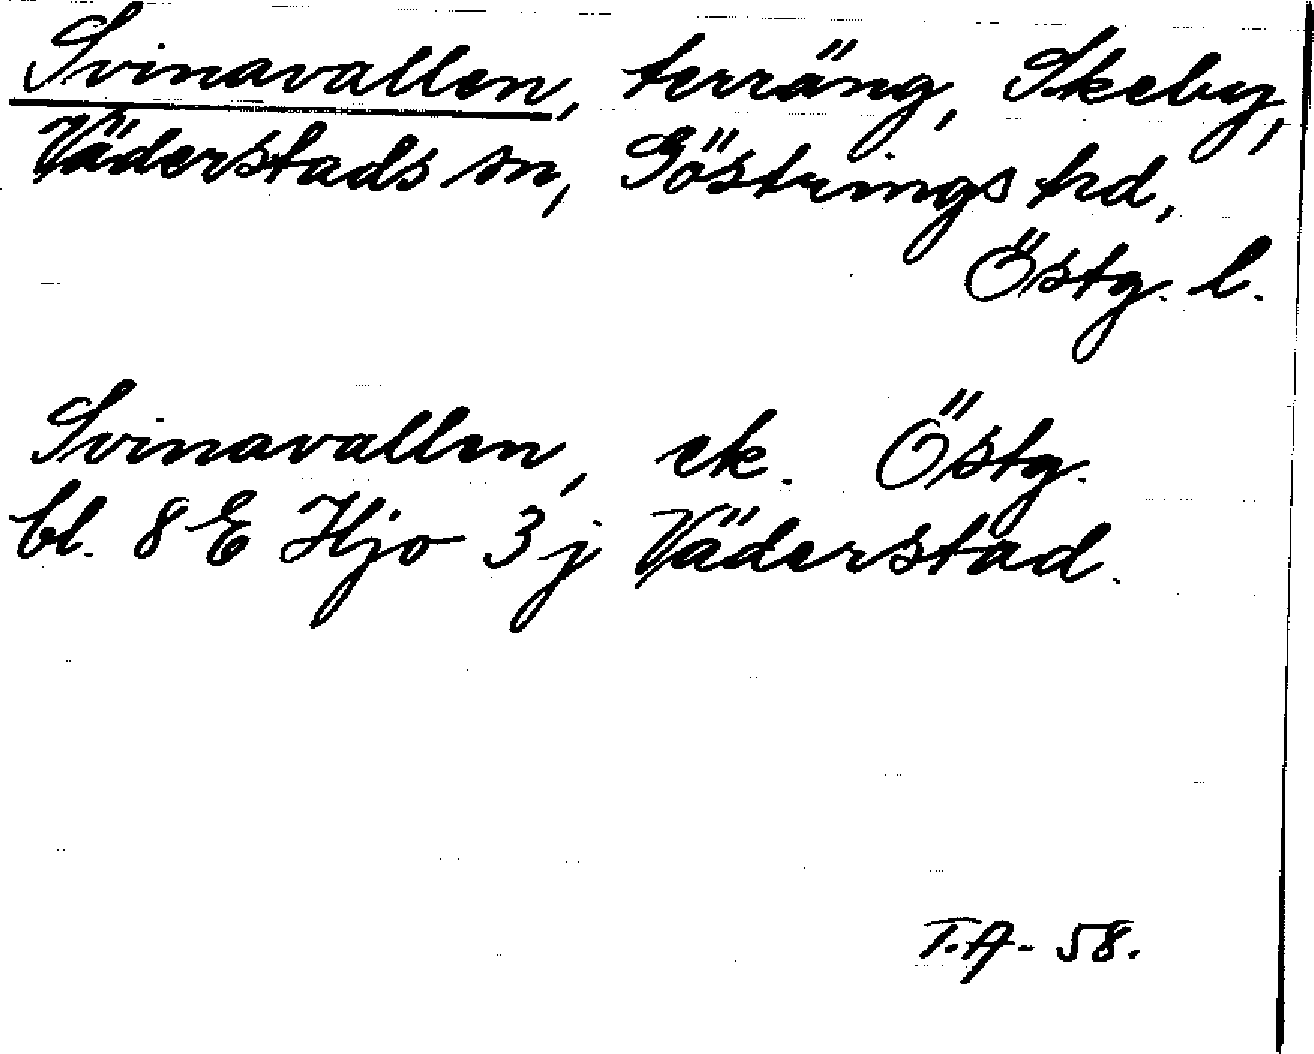 Svinavallen, terräng, Skeby,
Väderstads sn, Göstrings hd,
Östg. l.
Svinavallen, ek. Östg.
bl. 8 E Hjo 3 j Väderstad.
T.A- 58.